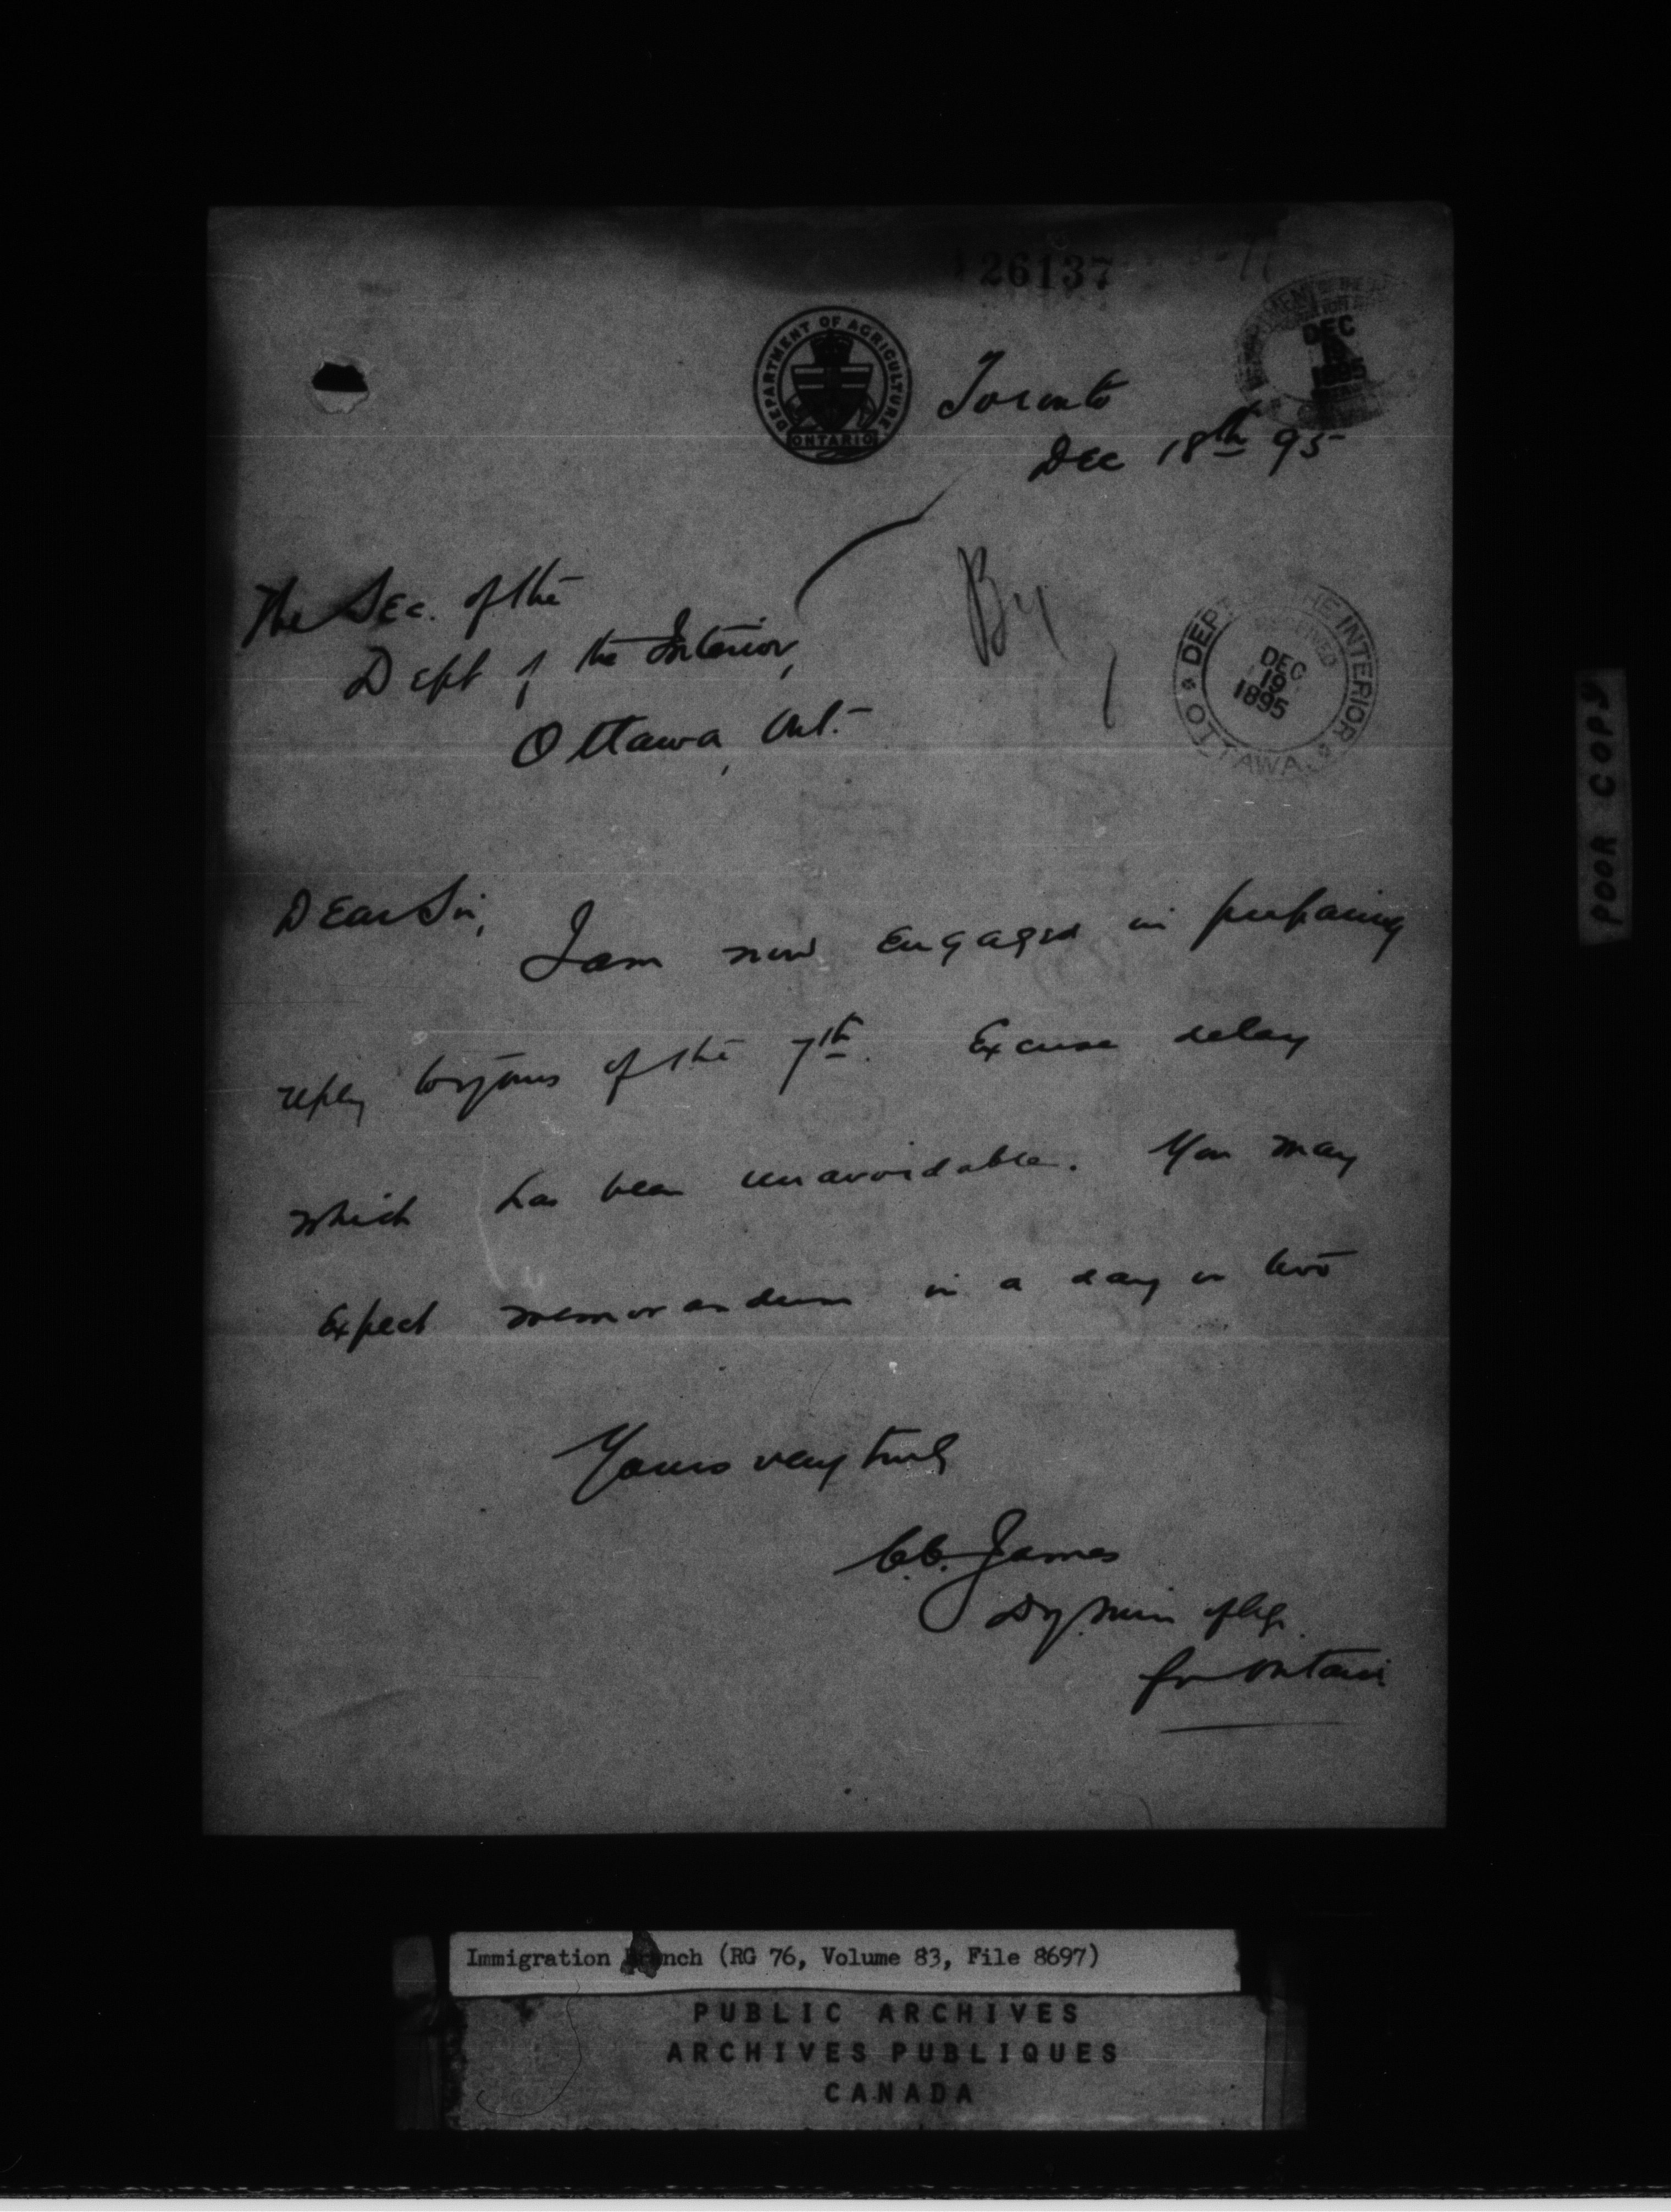 126137
DEPARTMENT OF AGRICULTURE
ONTARIO
DEC
1895
Toronto
Dec 18th 95
The Sec. of the
Dept of the Interior,
Ottawa, Ont.
DEPT OF THE INTERIOR
RECEIVED
DEC
19
1895
OTTAWA.
Dear Sir,
I am now engaged in preparing
reply to yours of the 7th. Excuse delay
which has been unavoidable. You may
expect memorandum in a day or two
Yours very truly
C.C. James
Dy. Min of Ag.
for Ontario
POOR COPY
Immigration Branch (RG 76, Volume 83, File 8697)
PUBLIC ARCHIVES
ARCHIVES PUBLIQUES
CANADA